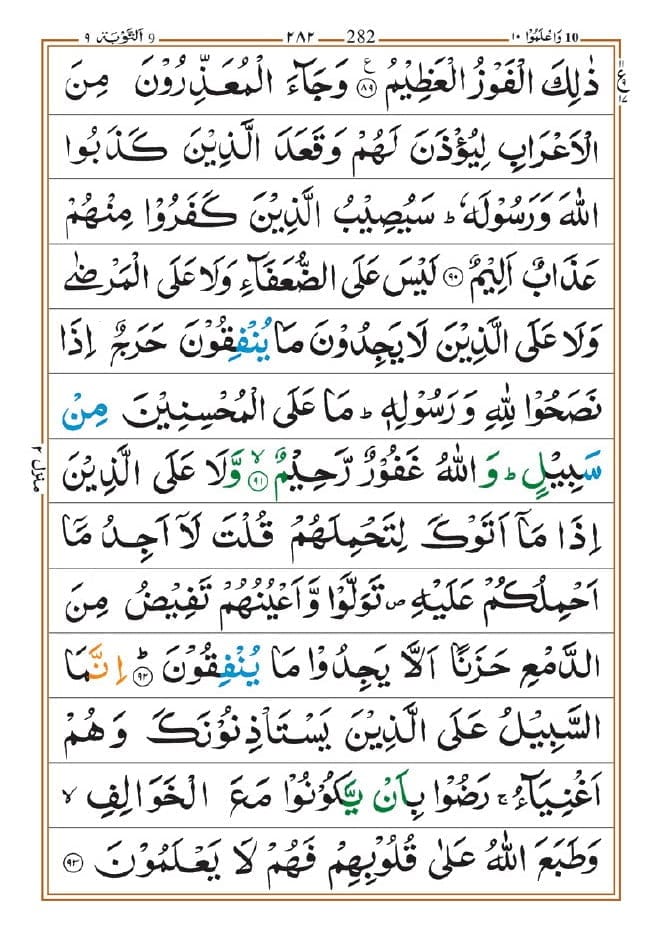 التوبة ٩ 9 ٢٨٢ 282 واعلموا ١٠ 10
ذٰلِكَ الْفَوْزُ الْعَظِيْمُ ﴿٨٩﴾ ع وَجَآءَ الْمُعَذِّرُوْنَ مِنَ
الْاَعْرَابِ لِيُؤْذَنَ لَهُمْ وَقَعَدَ الَّذِيْنَ كَذَبُوا
اللّٰهَ وَرَسُوْلَهٗ ؕ سَيُصِيْبُ الَّذِيْنَ كَفَرُوْا مِنْهُمْ
عَذَابٌ اَلِيْمٌ ﴿٩٠﴾ لَيْسَ عَلَى الضُّعَفَآءِ وَلَا عَلَى الْمَرْضٰى
وَلَا عَلَى الَّذِيْنَ لَا يَجِدُوْنَ مَا يُنْفِقُوْنَ حَرَجٌ اِذَا
نَصَحُوْا لِلّٰهِ وَرَسُوْلِهٖ ؕ مَا عَلَى الْمُحْسِنِيْنَ مِنْ
سَبِيْلٍ ؕ وَاللّٰهُ غَفُوْرٌ رَّحِيْمٌ ﴿٩١﴾ ۙ وَّلَا عَلَى الَّذِيْنَ
اِذَا مَاۤ اَتَوْكَ لِتَحْمِلَهُمْ قُلْتَ لَاۤ اَجِدُ مَاۤ
اَحْمِلُكُمْ عَلَيْهِ ص تَوَلَّوْا وَّاَعْيُنُهُمْ تَفِيْضُ مِنَ
الدَّمْعِ حَزَنًا اَلَّا يَجِدُوْا مَا يُنْفِقُوْنَ ﴿٩٢﴾ ؕ اِنَّمَا
السَّبِيْلُ عَلَى الَّذِيْنَ يَسْتَاْذِنُوْنَكَ وَهُمْ
اَغْنِيَآءُ ۚ رَضُوْا بِاَنْ يَّكُوْنُوْا مَعَ الْخَوَالِفِ ۙ
وَطَبَعَ اللّٰهُ عَلٰى قُلُوْبِهِمْ فَهُمْ لَا يَعْلَمُوْنَ ﴿٩٣﴾
منزل ٢